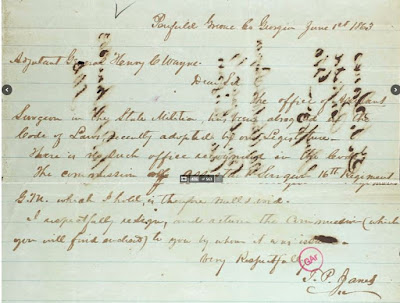 Penfield Greene Co Georgia June 1st 1863
Adjutant General Henry C Wayne
Dear Sir
The office of Assistant
Surgeon in the State Militia, has been abrogated by the
Code of Laws recently adopted by our Legislature.
There is no such office recognized in the Code
The commission of Assistant Surgeon 16th Regiment
G.M. which I hold, is therefore null & void.
I respectfully resign, and return the Commission (which
you will find enclosed) to you by whom it was issued
Very Respectfully
T. P. Janes